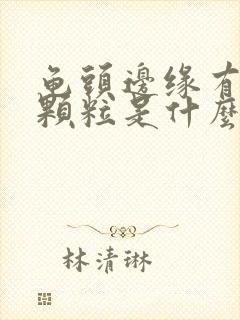 龟頭邊缘有
顆粒是什麼
林清琳